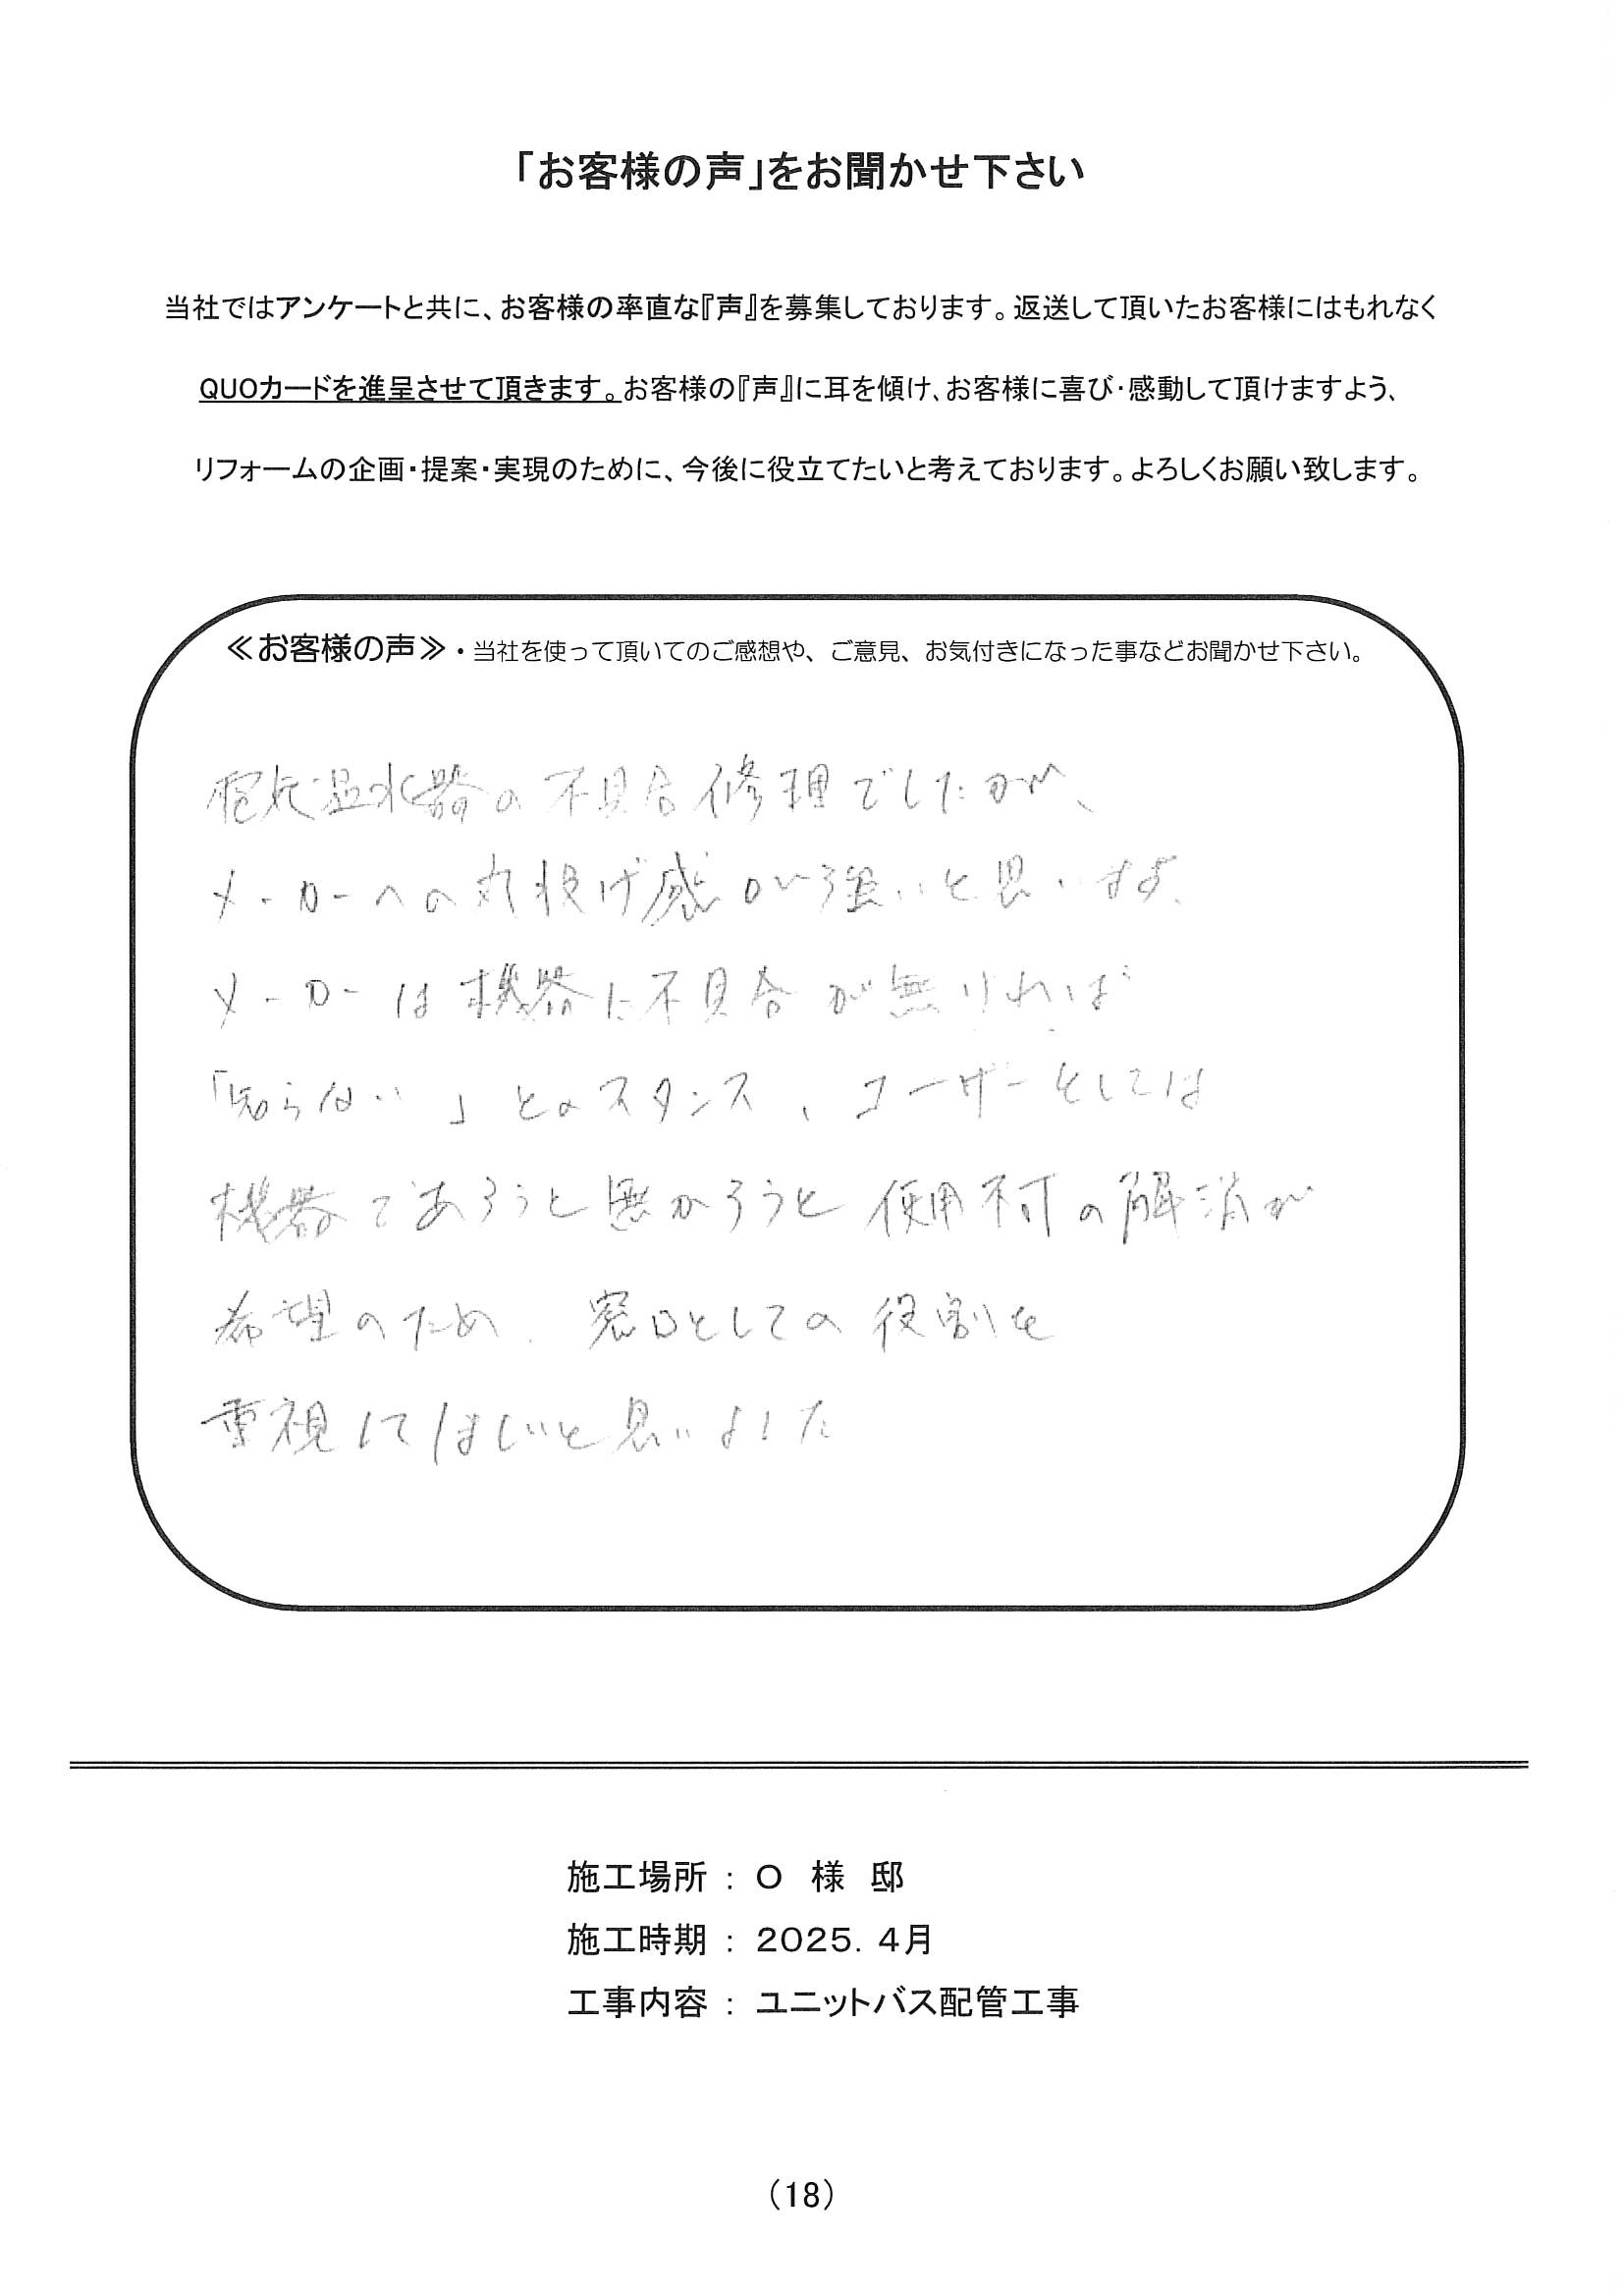 「お客様の声」をお聞かせ下さい
当社ではアンケートと共に、お客様の率直な『声』を募集しております。返送して頂いたお客様にはもれなく
QUOカードを進呈させて頂きます。お客様の『声』に耳を傾け、お客様に喜び・感動して頂けますよう、
リフォームの企画・提案・実現のために、今後に役立てたいと考えております。よろしくお願い致します。
≪お客様の声≫・当社を使って頂いてのご感想や、ご意見、お気付きになった事などお聞かせ下さい。
電気温水器の不具合修理でしたが、
メーカーへの丸投げ感が強いと思います、
メーカーは機器に不具合が無ければ
「知らない」とのスタンス、ユーザーとしては
機器であろうと無かろうと使用不可の解消が
希望のため、窓口としての役割を
重視してほしいと思いました
施工場所 : O 様 邸
施工時期 : 2025.4月
工事内容 : ユニットバス配管工事
(18)